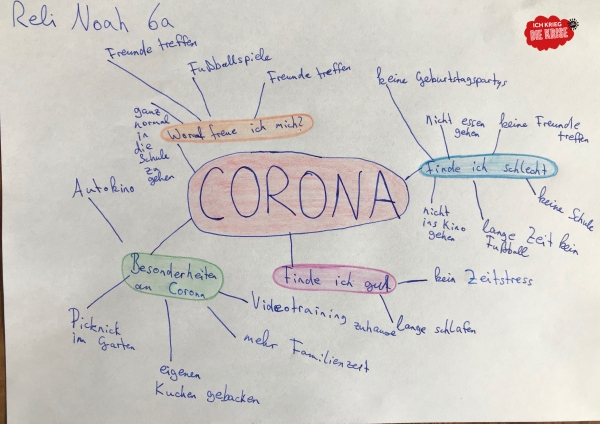 Reli Noah 6a
ICH KRIEG
DIE KRISE
Freunde treffen
Fußballspiele
Freunde treffen
ganz
normal
in
die
Schule
zu
gehen
Worauf freue ich mich?
keine Geburtstagspartys
nicht essen
gehen
keine Freunde
treffen
finde ich schlecht
keine Schule
nicht
ins Kino
gehen
lange Zeit kein
Fußball
CORONA
Autokino
Besonderheiten
an Corona
Picknick
im Garten
eigenen
Kuchen gebacken
mehr Familienzeit
Videotraining zuhause
finde ich gut
kein Zeitstress
lange schlafen